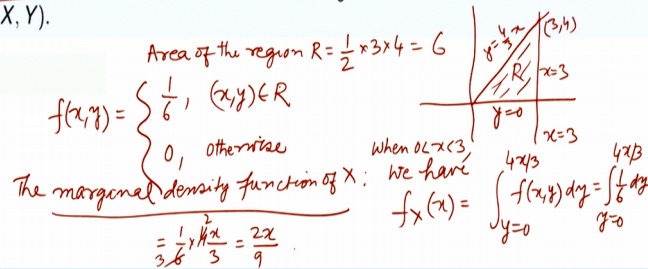 X, Y).
Area of the region R = 1/2 × 3 × 4 = 6
y = 4/3 x
(3,4)
R
x=3
y=0
x=3
f(x,y) = { 1/6, (x,y) ∈ R
0, otherwise
The marginal density function of X:
When 0<x<3,
we have
f_X(x) = ∫_{y=0}^{4x/3} f(x,y) dy = ∫_{y=0}^{4x/3} 1/6 dy
= 1/6 × 4x/3 = 2x/9.
3
2